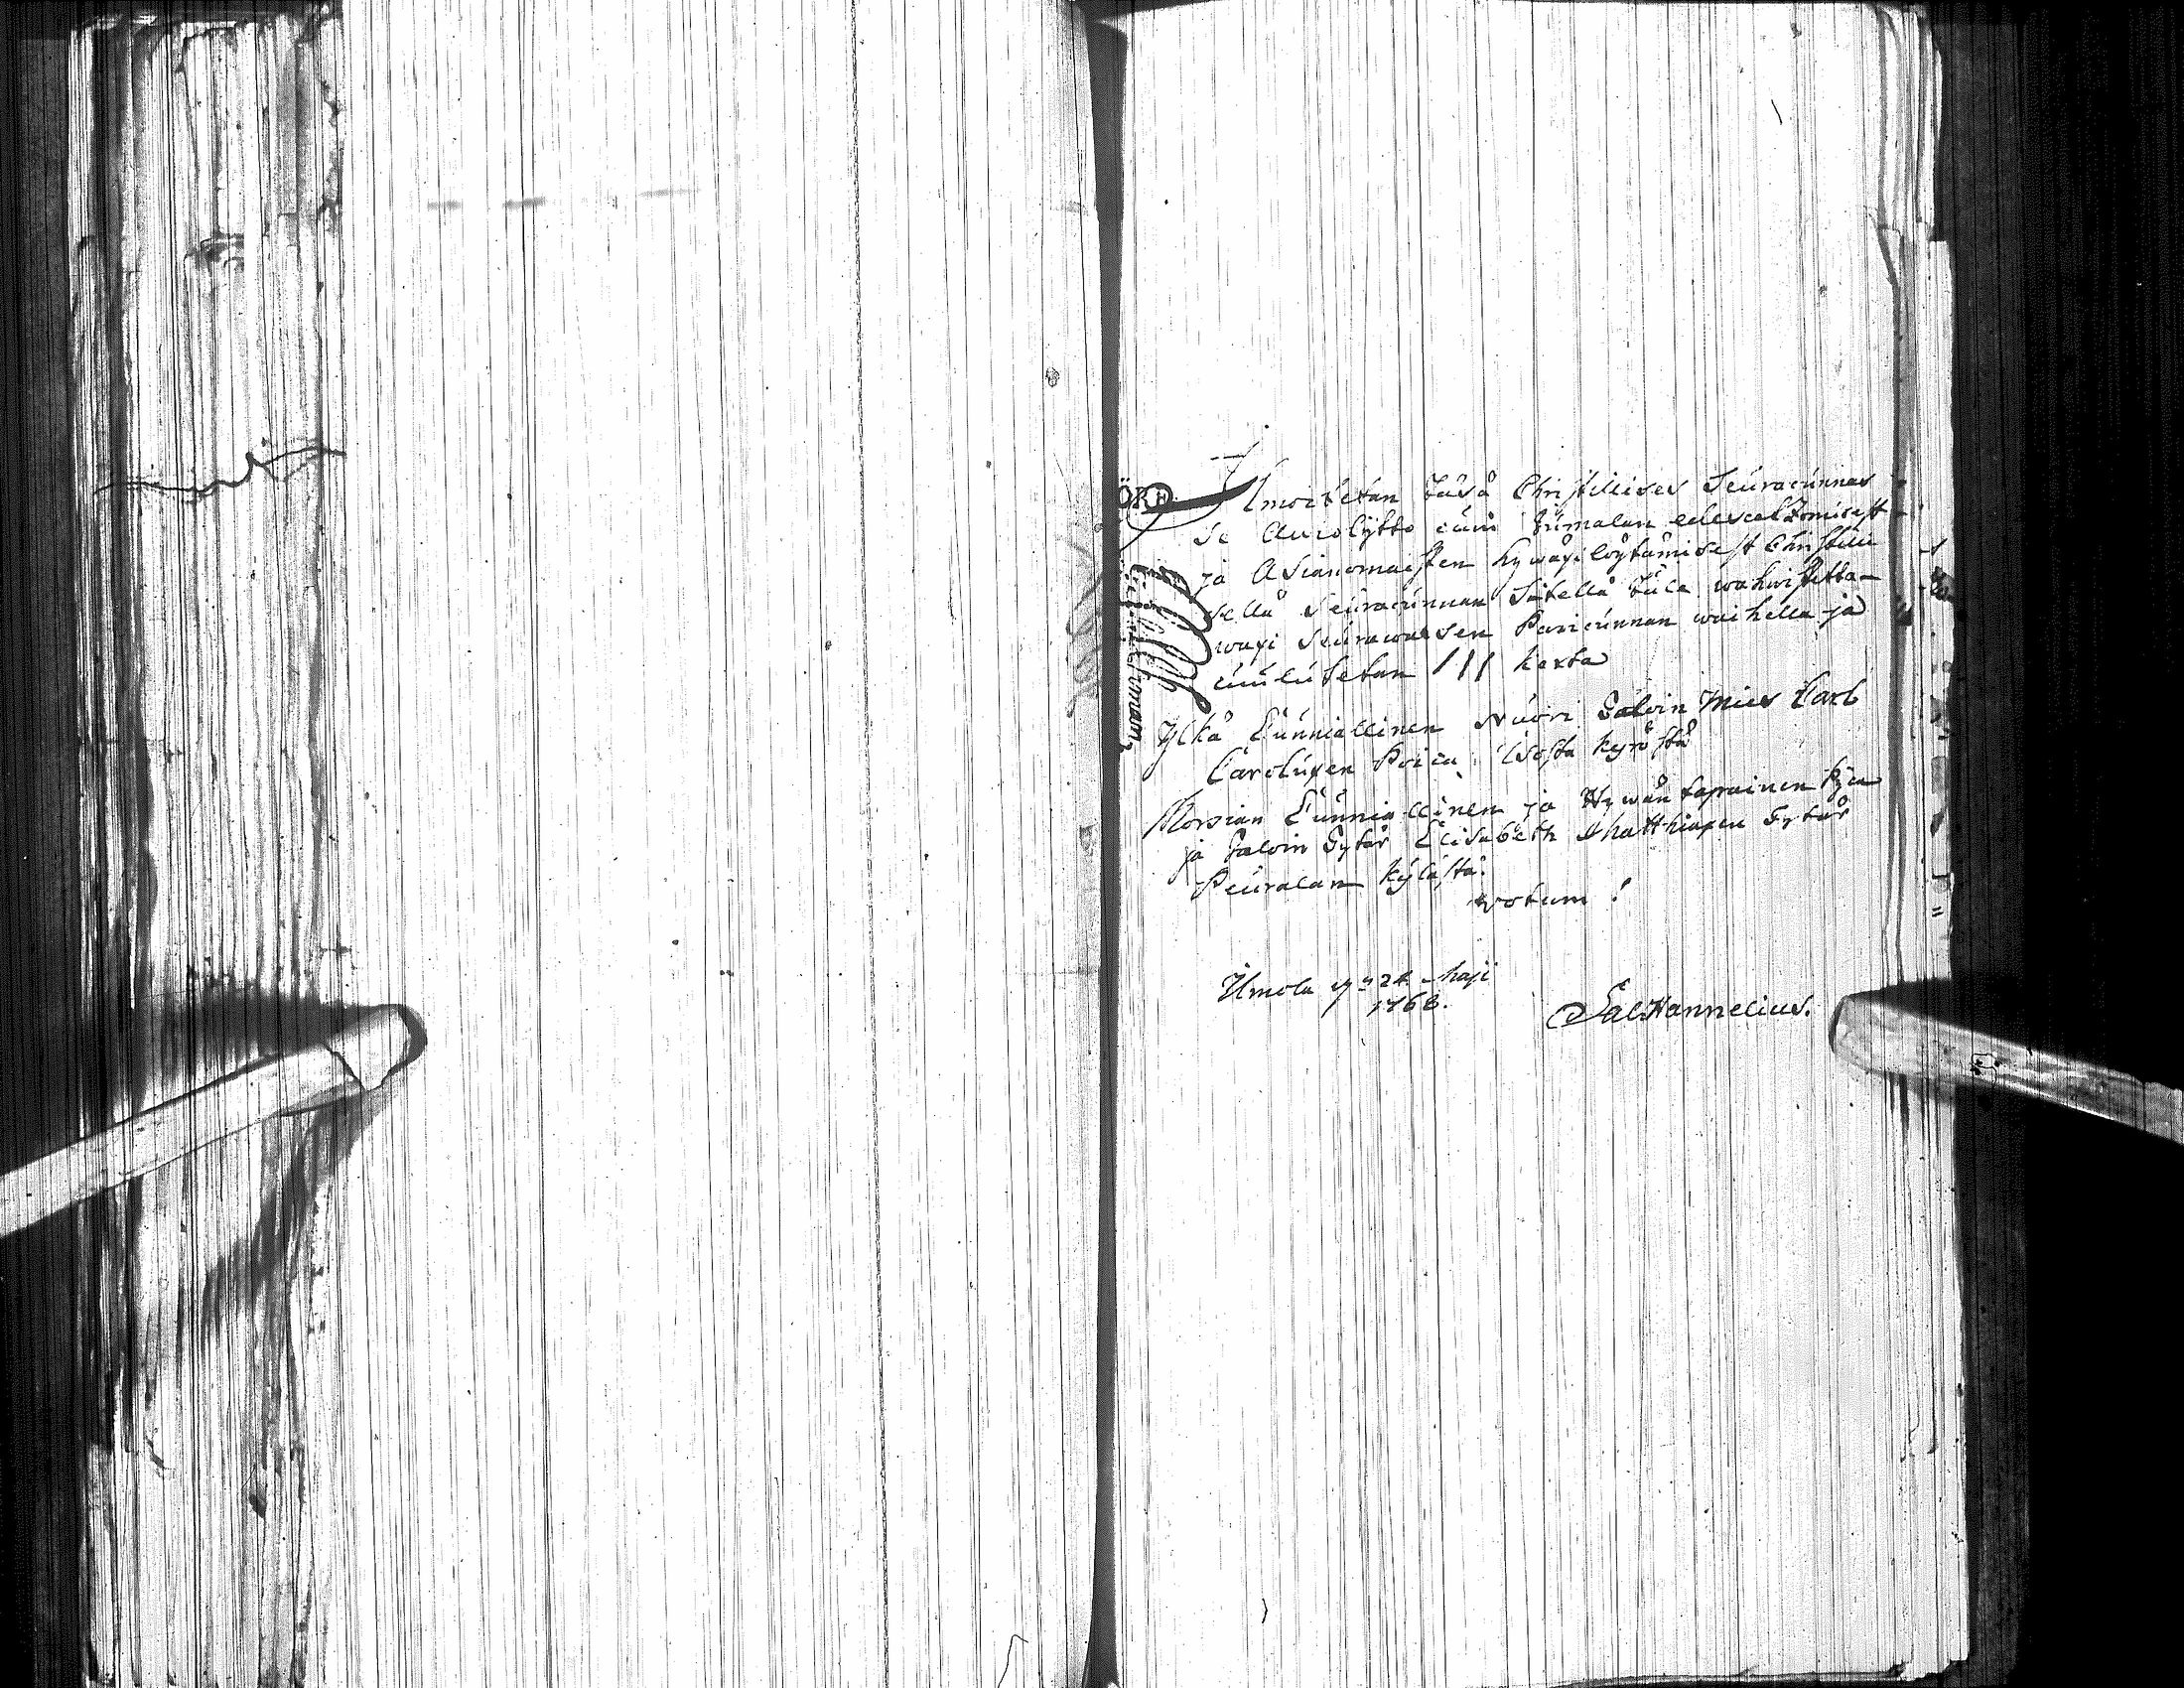 ÖRE
Ilmoitetan täsä Christillises Seuracunnas
se Awiolijtto cuin Jumalan edescatzomisest
ja Asianomaisten hywäxilöytämisest Christilli
sellä Seuracunnan Sätellä tule wahwistetta-
waxi Seurawaisen Paricunnan waihella ja
cuulutetan III kerta
Ylkä Cunniallinen Nuori Taloin Mies Carl
Caroluxen Poica Isosta kyröstä
Morsian Cunniallinen ja Hywän tapainen Pijca
ja Taloin Tytär Elisabeth Matthiaxen Tytär
Peuralan kylästä.
votum!
Ilmola d 24 Maji
1768.
Sal Hannelius.